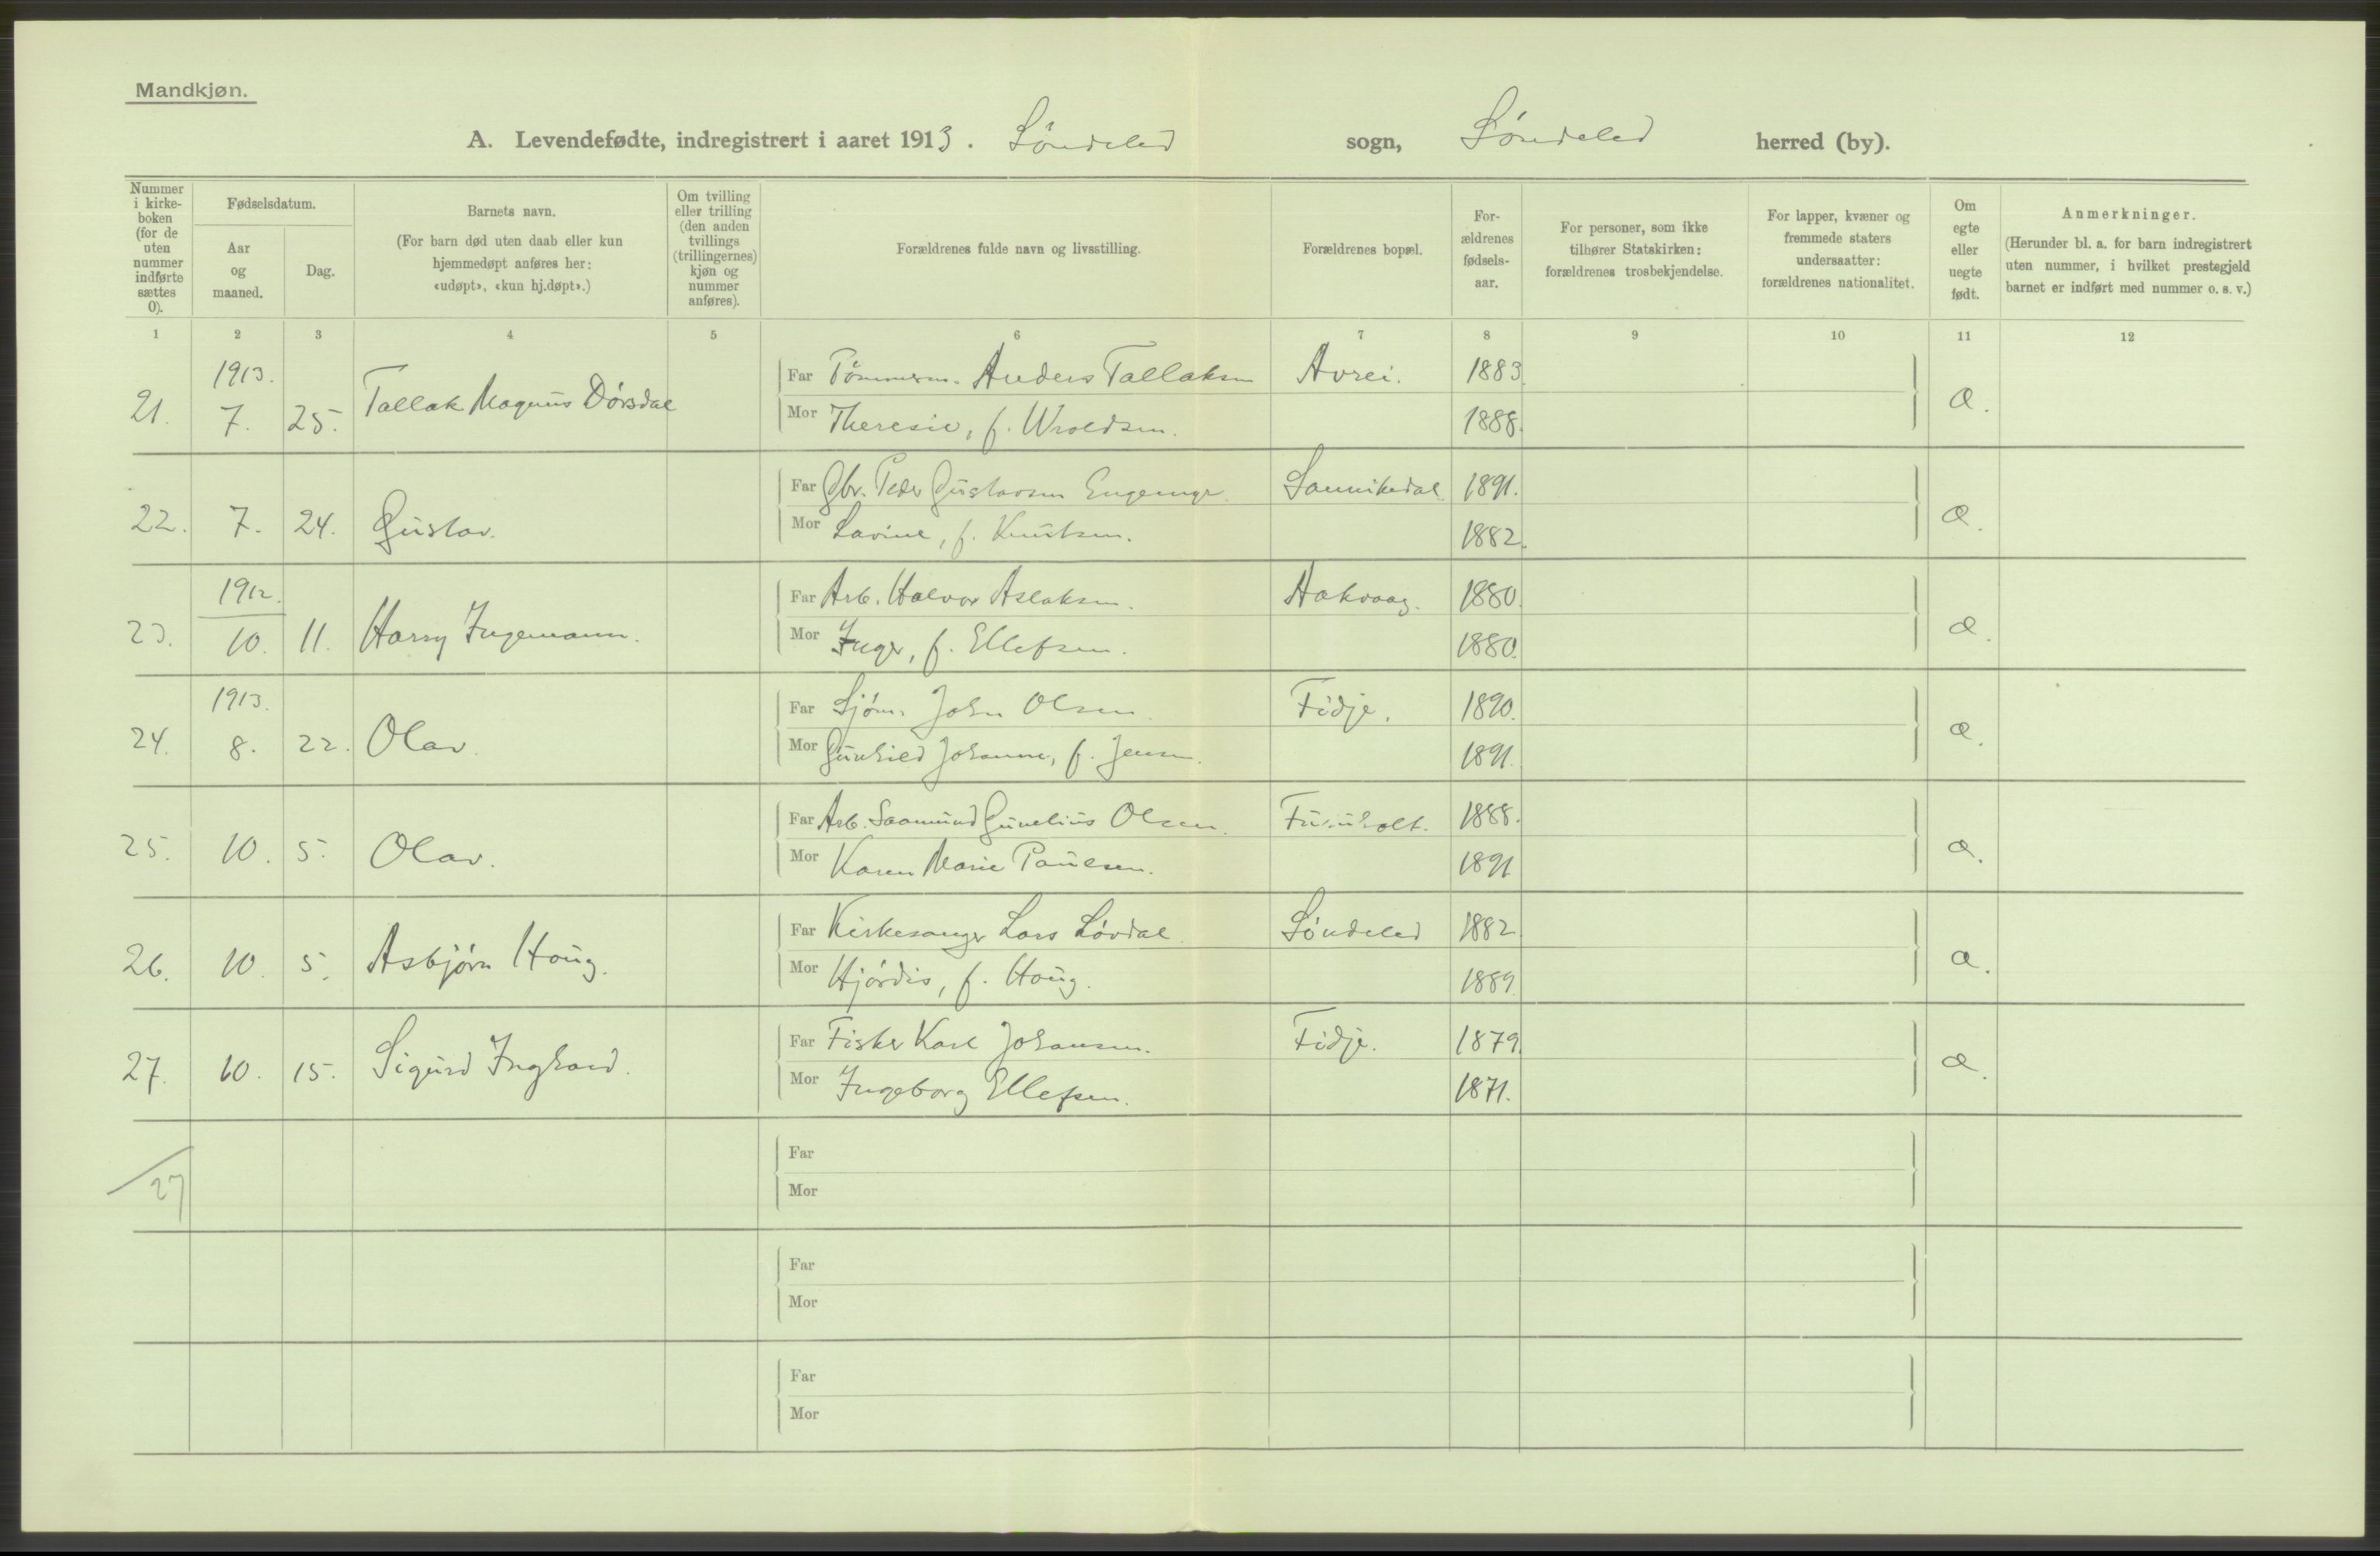 Mandkjøn.
A. Levendefødte, indregistrert i aaret 1913. Søndeled sogn, Søndeled herred (by).
Nummer i kirkeboken (for de uten nummer indførte sættes 0).
Fødselsdatum.
Aar og maaned.
Dag.
Barnets navn.
(For barn død uten daab eller kun hjemmedøpt anføres her: «udøpt», «kun hj.døpt».)
Om tvilling eller trilling (den anden tvillings (trillingernes) kjøn og nummer anføres).
Forældrenes fulde navn og livsstilling.
Forældrenes bopæl.
Forældrenes fødselsaar.
For personer, som ikke tilhører Statskirken: forældrenes trosbekjendelse.
For lapper, kvæner og fremmede staters undersaatter: forældrenes nationalitet.
Om egte eller uegte født.
Anmerkninger.
(Herunder bl. a. for barn indregistrert uten nummer, i hvilket prestegjeld barnet er indført med nummer o. s. v.)
1 2 3 4 5 6 7 8 9 10 11 12
1913.
21. 7. 25. Tallak Magnus Dørsdal
Far Tømmerm. Anders Tallaksen Avrei. 1883.
Mor Theresie, f. Wroldsen. 1888.
22. 7. 24. Gustav.
Far Gbr. Peder Gustavsen Sannikedal 1891.
Mor Lavine, f. Knutsen. 1882.
1912.
23. 10. 11. Harry Ingemann.
Far Arb. Halvor Aslaksen. Aakvaag. 1880.
Mor Inger, f. Ellefsen. 1880.
1913.
24. 8. 22. Olav.
Far Sjøm. John Olsen. Fidje. 1890.
Mor Gunhild Johanne, f. Jensen. 1891.
25. 10. 5. Olav.
Far Arb. Saamund Gunelius Olsen. 1888.
Mor Karen Marie Paulsen. 1891
26. 10. 5. Asbjørn Houg.
Far Kirkesanger Lars Løvdal. Søndeled 1882.
Mor Hjørdis, f. Houg. 1889.
27. 10. 15. Sigurd Inghard.
Far Fisker Karl Johansen. Fidje. 1879.
Mor Ingeborg Ellefsen. 1871.
27
Far
Mor
Far
Mor
Far
Mor